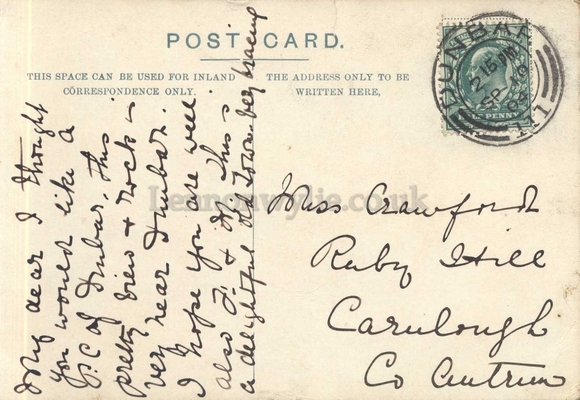 POST CARD.
THIS SPACE CAN BE USED FOR INLAND
CORRESPONDENCE ONLY.
THE ADDRESS ONLY TO BE
WRITTEN HERE,
My dear I thought
You would like a
P.C of Dunbar. This
pretty view & rock is
very near Dunbar.
I hope you are well
also F. & M. This is
a delightful old town very bracing
Miss Crawford
Ruby Hill
Carnlough
Co Antrim
DUNBAR
2 15 PM
SP
HALF PENNY
Lennonwylie.co.uk